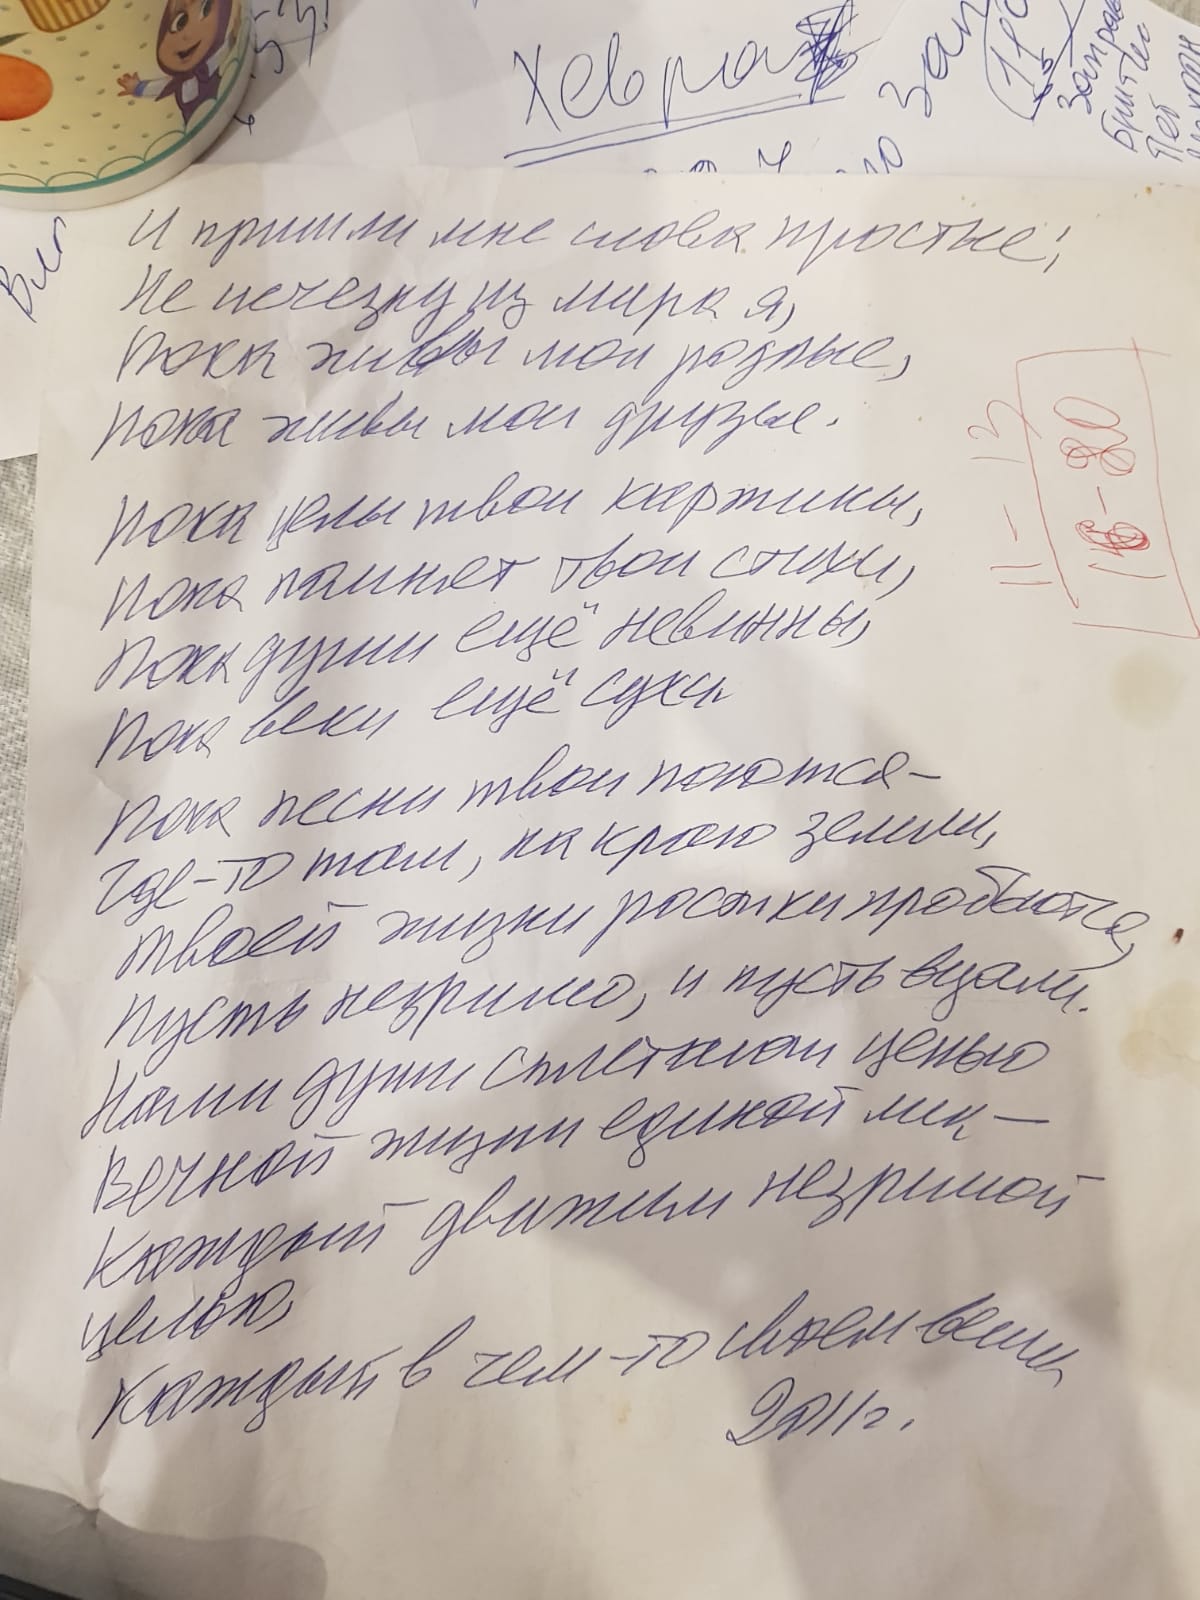 Хевра
Зап
И пришли мне слова простые;
Не исчезну из мира я,
Пока живы мои родные,
Пока живы мои друзья.
Пока целы твои картины,
Пока помнят твои стихи,
Пока души ещё невинны,
Пока веки ещё сухи.
Пока песни твои поются –
Где-то там, на краю земли,
Твоей жизни ростки пробьются,
Пусть незримо, и пусть вдали.
Наши души сплетены цепью
Вечной жизни единой лик –
Каждый движим незримой
целью,
Каждый в чем-то своем велик
2011г.
11 - 13
16 - 20